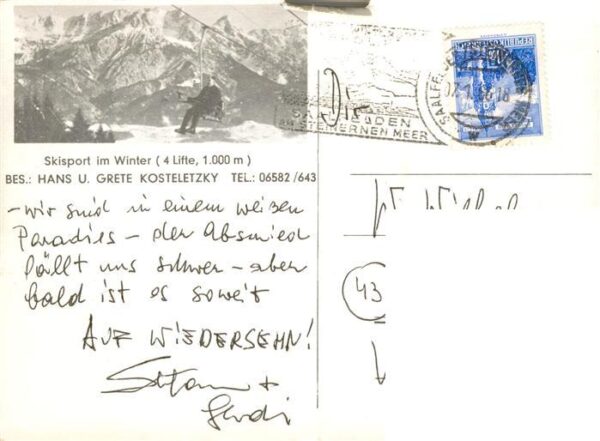 Skisport im Winter ( 4 Lifte, 1.000 m )
BES.: HANS U. GRETE KOSTELETZKY TEL.: 06582 /643
- wir sind in einem weißen
Paradies - der Abschied
fällt uns schwer - aber
bald ist es soweit
AUF WIEDERSEHN!
+
Gerdi
SAALFELDEN
AM STEINERNEN MEER
REPUBLIK ÖSTERREICH
43